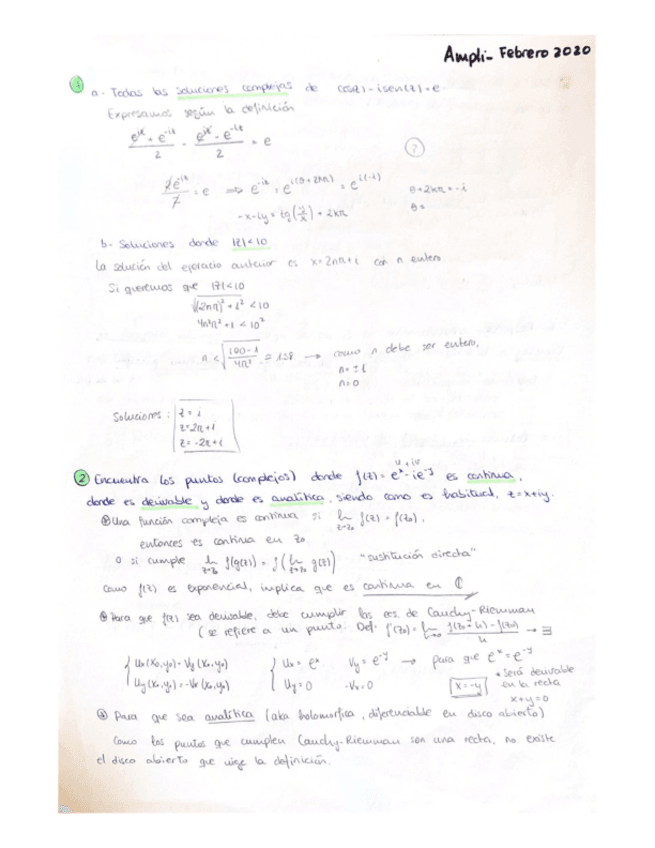 Ampli- Febrero 2020
1
a- Todas las soluciones complejas de cos(z) - isen(z) = e
Expresamos según la definición
(e^{iz} + e^{-iz})/2 - (e^{iz} - e^{-iz})/2 = e
?
2e^{-iz}/2 = e ⟹ e^{-iz} = e^{i(θ+2kπ)} = e^{i(-i)}
θ+2kπ = -i
θ=
-x-iy = tg(y/x) + 2kπ
b- Soluciones donde |z|<10
La solución del ejercicio anterior es x=2πn+i con n entero
Si queremos que |z|<10
√((2nπ)²+1²) <10
4n²π²+1 < 10²
n < √((100-1)/4π²) = 1.58 → como n debe ser entero,
n=±1
n=0
Soluciones: z = i
z=2π+i
z=-2π+i
2 Encuentra los puntos (complejos) donde f(z) = e^x - ie^{-y} es continua,
u + iv
donde es derivable y donde es analítica, siendo como es habitual, z=x+iy.
Una función compleja es continua si lim z→z₀ f(z) = f(z₀),
entonces es continua en z₀.
O si cumple lim z→z₀ f(g(z)) = f(lim z→z₀ g(z)) "sustitución directa"
Como f(z) es exponencial, implica que es continua en ℂ
Para que f(z) sea derivable, debe cumplir las ecs. de Cauchy-Riemman
(se refiere a un punto. Def: f'(z₀) = lim h→0 (f(z₀+h) - f(z₀))/h → ∃
{ Ux(x₀,y₀) = Vy(x₀,y₀) { Ux = e^x Vy = e^{-y} → para que e^x = e^{-y}
Uy(x₀,y₀) = -Vx(x₀,y₀) Uy = 0 -Vx = 0 x=-y
* será derivable
en la recta
x+y=0
Para que sea analítica (aka holomorfica, diferenciable en disco abierto)
Como los puntos que cumplen Cauchy-Riemman son una recta, no existe
el disco abierto que exige la definición.